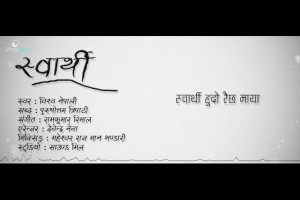 स्वार्थी
स्वर : विश्व नेपाली
शब्द : पुरुषोत्तम त्रिपाठी
संगीत : रामकुमार रिमाल
एरेन्जर : देवेन्द्र नेवा
मिक्सिङ : महेश्वर राज मान भण्डारी
स्टुडियो : साउण्ड मिल
स्वार्थी हुदो रैछ माया